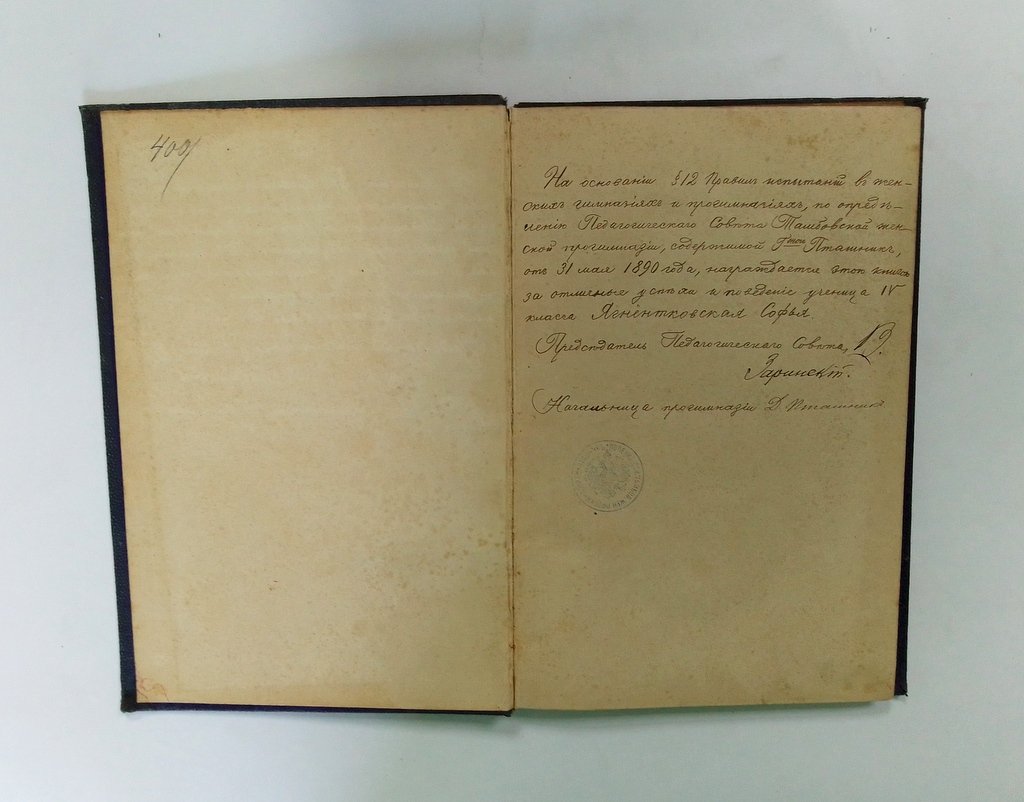 409
На основаніи §12 Правилъ испытаній въ жен-
скихъ гимназіяхъ и прогимназіяхъ, по опредѣ-
ленію Педагогическаго Совѣта Тамбовской жен-
ской прогимназіи, содержимой Г-жею Пташникъ,
отъ 31 мая 1890 года, награждается этою книгою
за отличные успѣхи и поведеніе ученица IV
класса Ягнентковская Софья.
Предсѣдатель Педагогическаго Совѣта, В.
Заринскій.
Начальница прогимназіи Д. Пташникъ